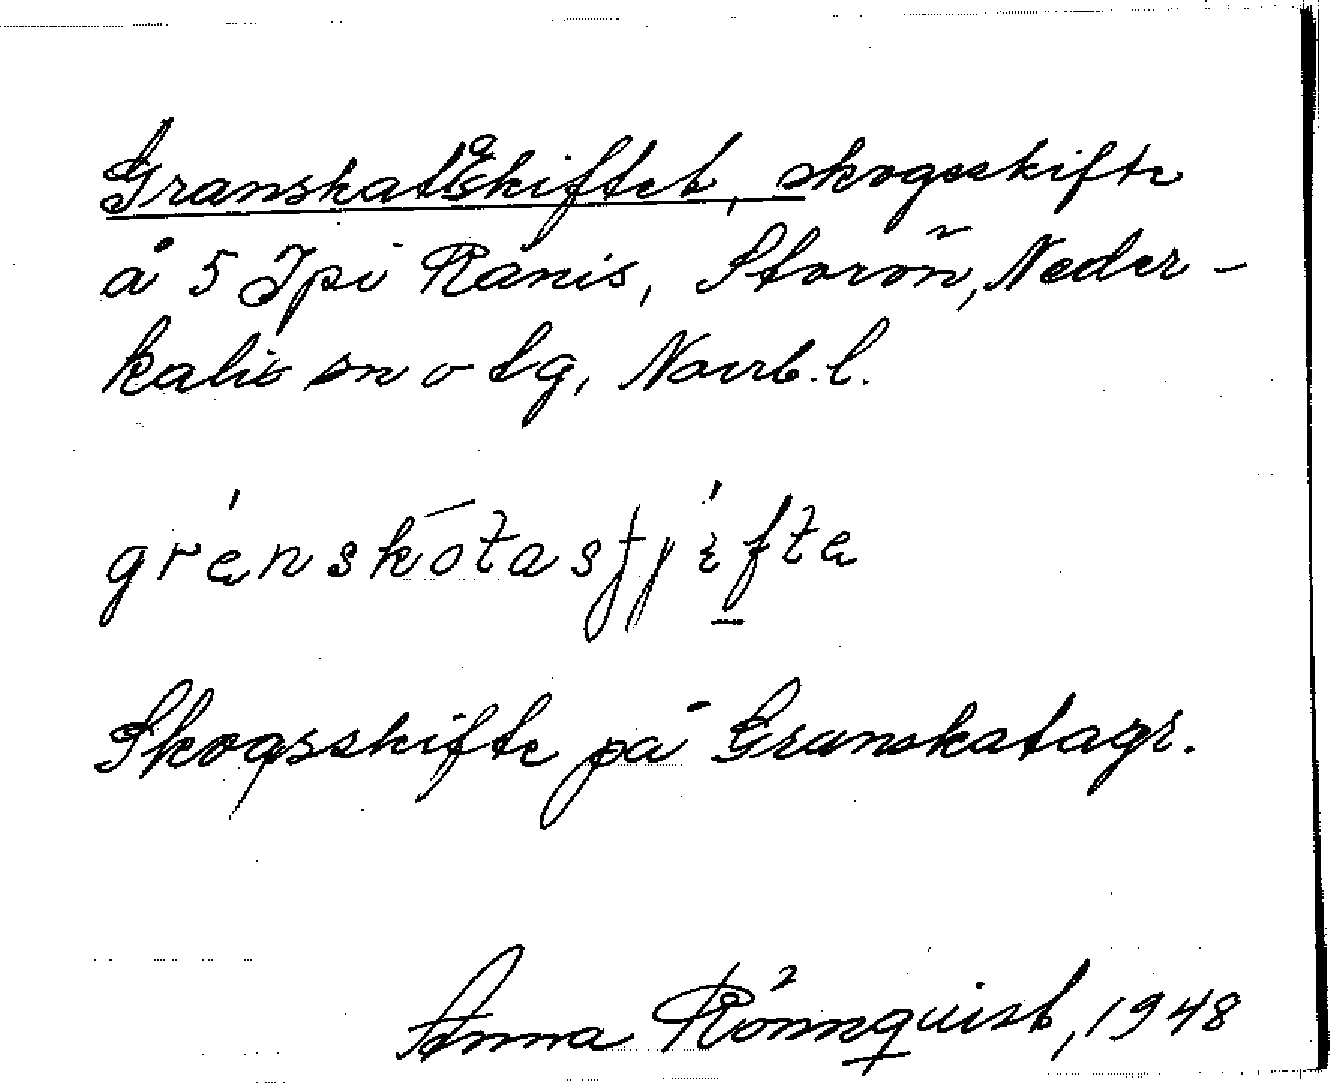 Granskataskiftet, skogsskifte
å 5 Jpi Ranis, Storön, Neder-
kalix sn o tg, Norrb. l.
gránskōtastjifte
Skogsskifte på Granskatagr.
Anna Rönnquist, 1948